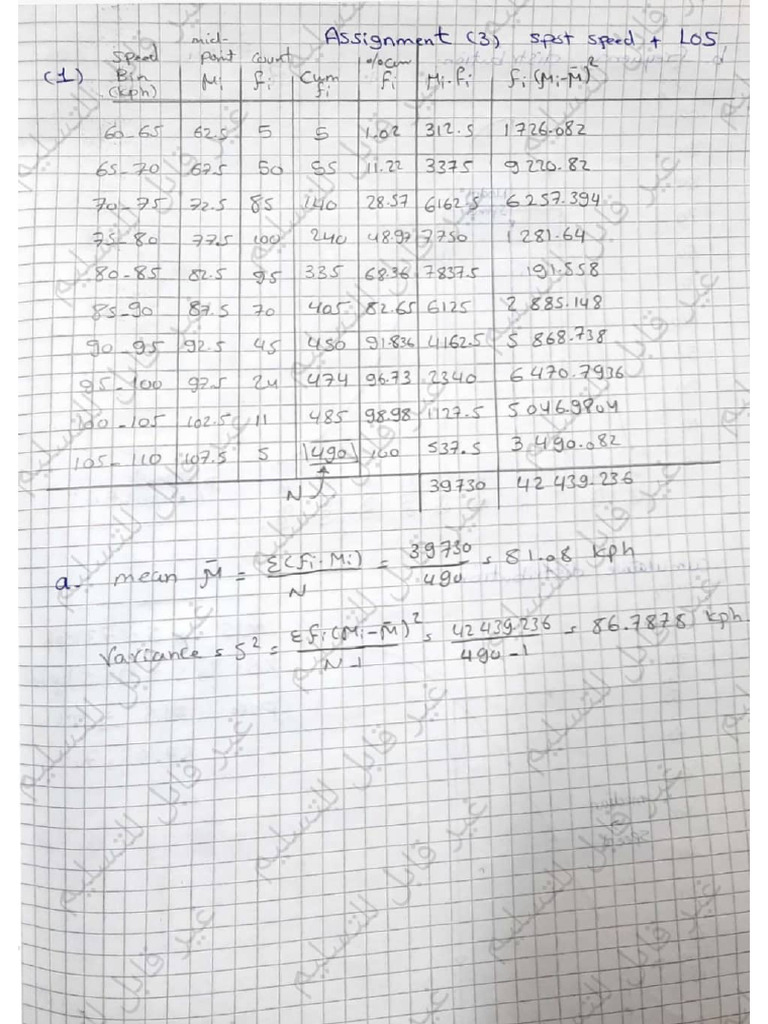 Assignment (3) spot speed + LOS
(1) Speed Bin (kph) mid-point Mi count fi Cum fi %Cum fi Mi.fi fi(Mi-M̄)²
60-65 62.5 5 5 1.02 312.5 1726.082
65-70 67.5 50 55 11.22 3375 9220.82
70-75 72.5 85 140 28.57 6162.5 6257.394
75-80 77.5 100 240 48.97 7750 1281.64
80-85 82.5 95 335 68.36 7837.5 191.558
85-90 87.5 70 405 82.65 6125 2885.148
90-95 92.5 45 450 91.836 4162.5 5868.738
95-100 97.5 24 474 96.73 2340 6470.7936
100-105 102.5 11 485 98.98 1127.5 5046.9804
105-110 107.5 5 490 100 537.5 3490.082
N 39730 42439.236
a- mean M̄ = Σ(fi.Mi)/N = 39730/490 = 81.08 kph
Variance = S² = Σfi(Mi-M̄)²/N-1 = 42439.236/490-1 = 86.7878 kph
غير قابل للتسليم